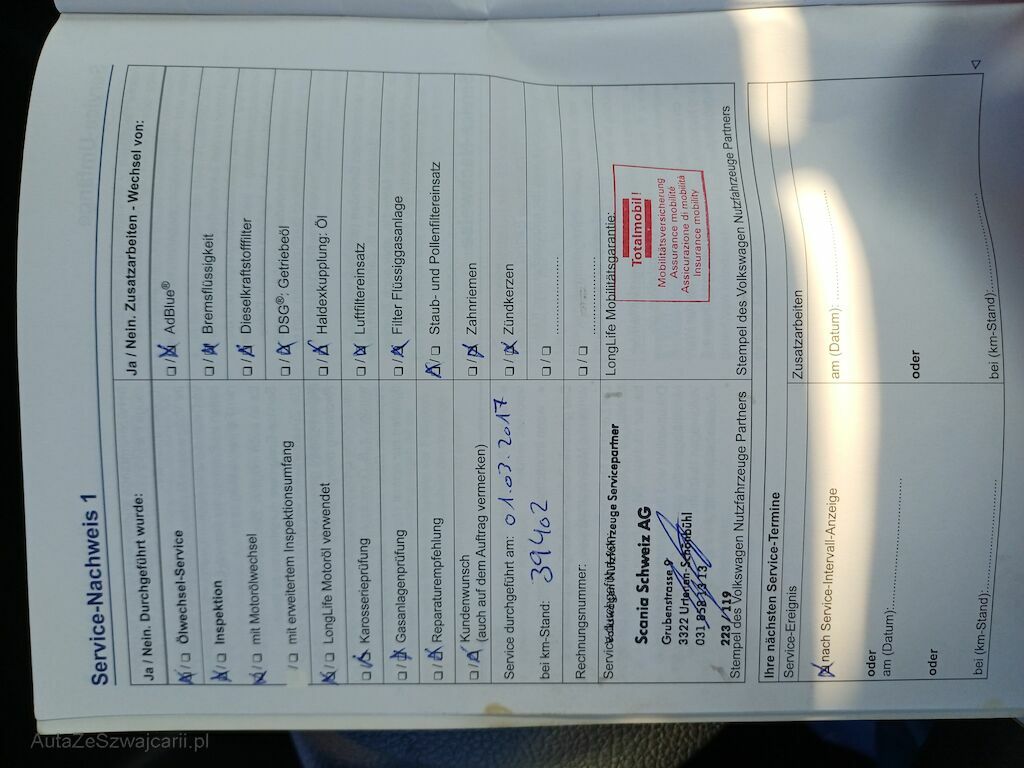 Service-Nachweis 1
Ja / Nein. Durchgeführt wurde:
☒/☐ Ölwechsel-Service
☒/☐ Inspektion
☒/☐ mit Motorölwechsel
/☐ mit erweitertem Inspektionsumfang
☒/☐ LongLife Motoröl verwendet
☐/☒ Karosserieprüfung
☐/☒ Gasanlagenprüfung
☐/☒ Reparaturempfehlung
☐/☒ Kundenwunsch
(auch auf dem Auftrag vermerken)
Service durchgeführt am: 01.03.2017
bei km-Stand: 39402
Rechnungsnummer:
Nutzfahrzeuge Servicepartner
Scania Schweiz AG
Grubenstrasse
3322 Urtenen-Schönbühl
031
223 / 119
Stempel des Volkswagen Nutzfahrzeuge Partners
Ja / Nein. Zusatzarbeiten - Wechsel von:
☐/☒ AdBlue®
☐/☒ Bremsflüssigkeit
☐/☒ Dieselkraftstofffilter
☐/☒ DSG®: Getriebeöl
☐/☒ Haldexkupplung: Öl
☐/☒ Luftfiltereinsatz
☐/☒ Filter Flüssiggasanlage
☒/☐ Staub- und Pollenfiltereinsatz
☐/☒ Zahnriemen
☐/☒ Zündkerzen
☐/☐ ....................
☐/☐ ....................
LongLife Mobilitätsgarantie:
Totalmobil!
Mobilitätsversicherung
Assurance mobilité
Assicurazione di mobilità
Insurance mobility
Stempel des Volkswagen Nutzfahrzeuge Partners
Ihre nächsten Service-Termine
Service-Ereignis
☒ nach Service-Intervall-Anzeige
oder
am (Datum):....................
oder
bei (km-Stand):....................
Zusatzarbeiten
am (Datum):....................
oder
bei (km-Stand)....................
AutaZeSzwajcarii.pl